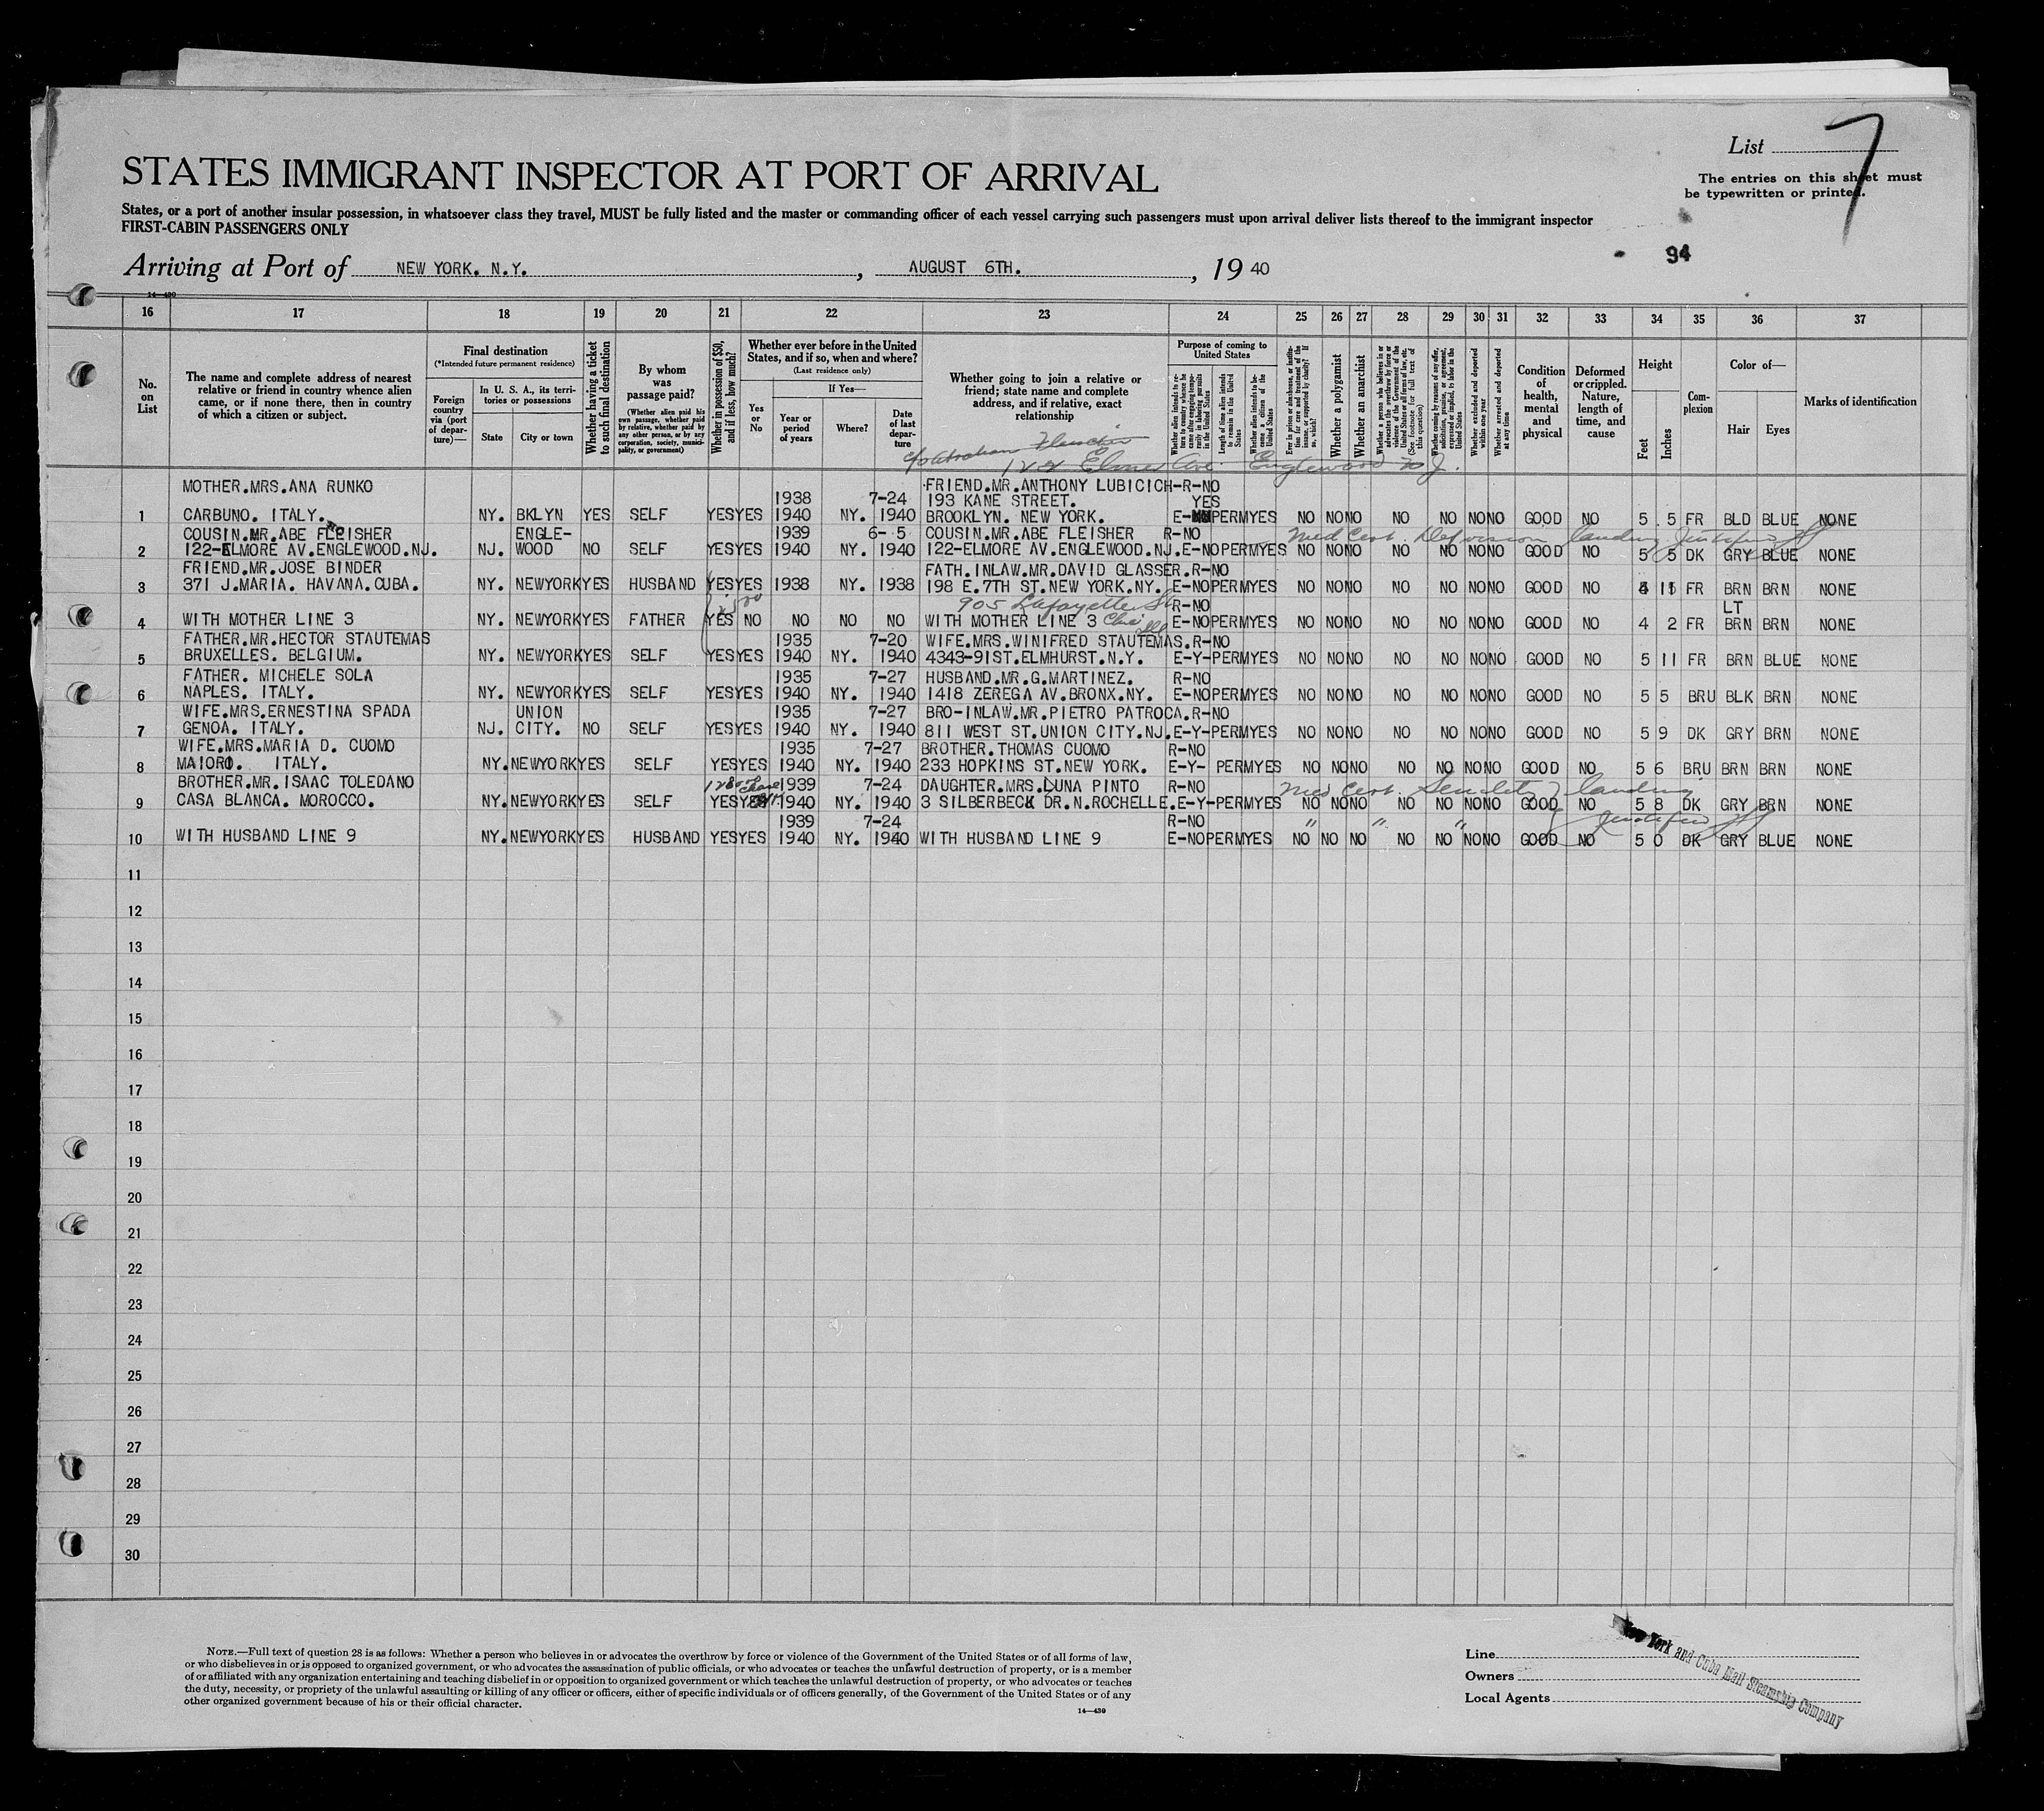 List 7
The entries on this sheet must
be typewritten or printed.
STATES IMMIGRANT INSPECTOR AT PORT OF ARRIVAL
States, or a port of another insular possession, in whatsoever class they travel, MUST be fully listed and the master or commanding officer of each vessel carrying such passengers must upon arrival deliver lists thereof to the immigrant inspector
FIRST-CABIN PASSENGERS ONLY
94
Arriving at Port of NEW YORK. N.Y. , AUGUST 6TH. , 19 40
14—430
16 17 18 19 20 21 22 23 24 25 26 27 28 29 30 31 32 33 34 35 36 37
No. on List
The name and complete address of nearest relative or friend in country whence alien came, or if none there, then in country of which a citizen or subject.
Final destination
(*Intended future permanent residence)
Foreign country via (port of departure)—
In U. S. A., its territories or possessions
State
City or town
Whether having a ticket to such final destination
By whom was passage paid?
(Whether alien paid his own passage, whether paid by relative, whether paid by any other person, or by any corporation, society, municipality, or government)
Whether in possession of $50, and if less, how much?
Whether ever before in the United States, and if so, when and where?
(Last residence only)
Yes or No
If Yes—
Year or period of years
Where?
Date of last departure
Whether going to join a relative or friend; state name and complete address, and if relative, exact relationship
Purpose of coming to United States
Whether alien intends to return to country whence he came after engaging temporarily in laboring pursuits in the United States
Length of time alien intends to remain in the United States
Whether alien intends to become a citizen of the United States
Ever in prison or almshouse, or institution for care and treatment of the insane, or supported by charity? If so, which?
Whether a polygamist
Whether an anarchist
Whether a person who believes in or advocates the overthrow by force or violence of the Government of the United States or all forms of law, etc. (See footnote for full text of this question)
Whether coming by reasons of any offer, solicitation, promise, or agreement, expressed or implied, to labor in the United States
Whether excluded and deported within one year
Whether arrested and deported at any time
Condition of health, mental and physical
Deformed or crippled. Nature, length of time, and cause
Height
Feet
Inches
Complexion
Color of—
Hair
Eyes
Marks of identification
c/o Abraham
122 Elmer Ave. Englewood N.J.
MOTHER.MRS.ANA RUNKO 1938 7-24 FRIEND.MR.ANTHONY LUBICICH-R-NO
193 KANE STREET. YES
1 CARBUNO. ITALY. NY. BKLYN YES SELF YES YES 1940 NY. 1940 BROOKLYN. NEW YORK. E- PERM YES NO NO NO NO NO NO NO GOOD NO 5 5 FR BLD BLUE NONE
COUSIN.MR.ABE FLEISHER ENGLE- 1939 6- 5 COUSIN.MR.ABE FLEISHER R-NO Med Cert. landing
2 122-ELMORE AV.ENGLEWOOD.NJ. NJ. WOOD NO SELF YES YES 1940 NY. 1940 122-ELMORE AV.ENGLEWOOD.NJ. E-NO PERM YES NO NO NO NO NO NO NO GOOD NO 5 5 DK GRY BLUE NONE
FRIEND.MR.JOSE BINDER FATH.INLAW.MR.DAVID GLASSER. R-NO
3 371 J.MARIA. HAVANA.CUBA. NY. NEWYORK YES HUSBAND YES YES 1938 NY. 1938 198 E.7TH ST.NEW YORK.NY. E-NO PERM YES NO NO NO NO NO NO NO GOOD NO 11 FR BRN BRN NONE
905 Lafayette St R-NO LT
4 WITH MOTHER LINE 3 NY. NEWYORK YES FATHER YES NO NO NO NO WITH MOTHER LINE 3 E-NO PERM YES NO NO NO NO NO NO NO GOOD NO 4 2 FR BRN BRN NONE
FATHER.MR.HECTOR STAUTEMAS 1935 7-20 WIFE.MRS.WINIFRED STAUTEMAS. R-NO
5 BRUXELLES. BELGIUM. NY. NEWYORK YES SELF YES YES 1940 NY. 1940 4343-91ST.ELMHURST.N.Y. E-Y-PERM YES NO NO NO NO NO NO NO GOOD NO 5 11 FR BRN BLUE NONE
FATHER. MICHELE SOLA 1935 7-27 HUSBAND.MR.G.MARTINEZ. R-NO
6 NAPLES. ITALY. NY. NEWYORK YES SELF YES YES 1940 NY. 1940 1418 ZEREGA AV.BRONX.NY. E-NO PERM YES NO NO NO NO NO NO NO GOOD NO 5 5 BRU BLK BRN NONE
WIFE.MRS.ERNESTINA SPADA UNION 1935 7-27 BRO-INLAW.MR.PIETRO PATROCA. R-NO
7 GENOA. ITALY. NJ. CITY. NO SELF YES YES 1940 NY. 1940 811 WEST ST.UNION CITY.NJ. E-Y-PERM YES NO NO NO NO NO NO NO GOOD NO 5 9 DK GRY BRN NONE
WIFE.MRS.MARIA D. CUOMO 1935 7-27 BROTHER.THOMAS CUOMO R-NO
8 MAIORI. ITALY. NY. NEWYORK YES SELF YES YES 1940 NY. 1940 233 HOPKINS ST.NEW YORK. E-Y- PERM YES NO NO NO NO NO NO NO GOOD NO 5 6 BRU BRN BRN NONE
BROTHER.MR.ISAAC TOLEDANO 1939 7-24 DAUGHTER.MRS.LUNA PINTO R-NO Med Cert. Senility landing
9 CASA BLANCA. MOROCCO. NY. NEWYORK YES SELF YES YES 1940 NY. 1940 3 SILBERBECK DR.N.ROCHELLE. E-Y-PERM YES NO NO NO NO NO NO NO GOOD NO 5 8 DK GRY BRN NONE
1939 7-24 R-NO " " "
10 WITH HUSBAND LINE 9 NY. NEWYORK YES HUSBAND YES YES 1940 NY. 1940 WITH HUSBAND LINE 9 E-NO PERM YES NO NO NO NO NO NO NO GOOD NO 5 0 DK GRY BLUE NONE
11
12
13
14
15
16
17
18
19
20
21
22
23
24
25
26
27
28
29
30
NOTE.—Full text of question 28 is as follows: Whether a person who believes in or advocates the overthrow by force or violence of the Government of the United States or of all forms of law,
or who disbelieves in or is opposed to organized government, or who advocates the assassination of public officials, or who advocates or teaches the unlawful destruction of property, or is a member
of or affiliated with any organization entertaining and teaching disbelief in or opposition to organized government or which teaches the unlawful destruction of property, or who advocates or teaches
the duty, necessity, or propriety of the unlawful assaulting or killing of any officer or officers, either of specific individuals or of officers generally, of the Government of the United States or of any
other organized government because of his or their official character.
14—430
Line
Owners
Local Agents
New York and Cuba Mail Steamship Company